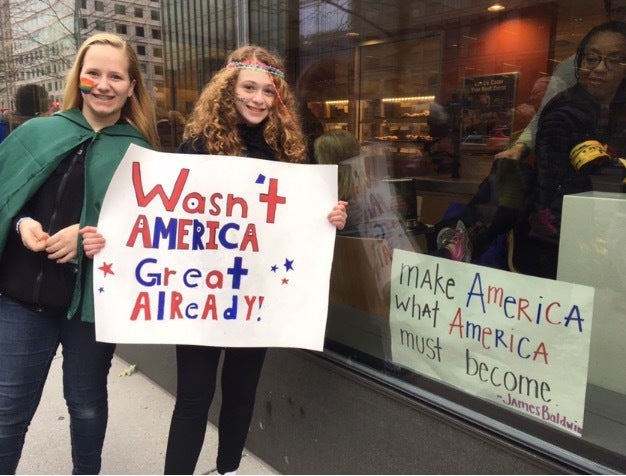 Wasn't
AMERICA
Great
AlReadY!
make America
what America
must become.
-James Baldwin